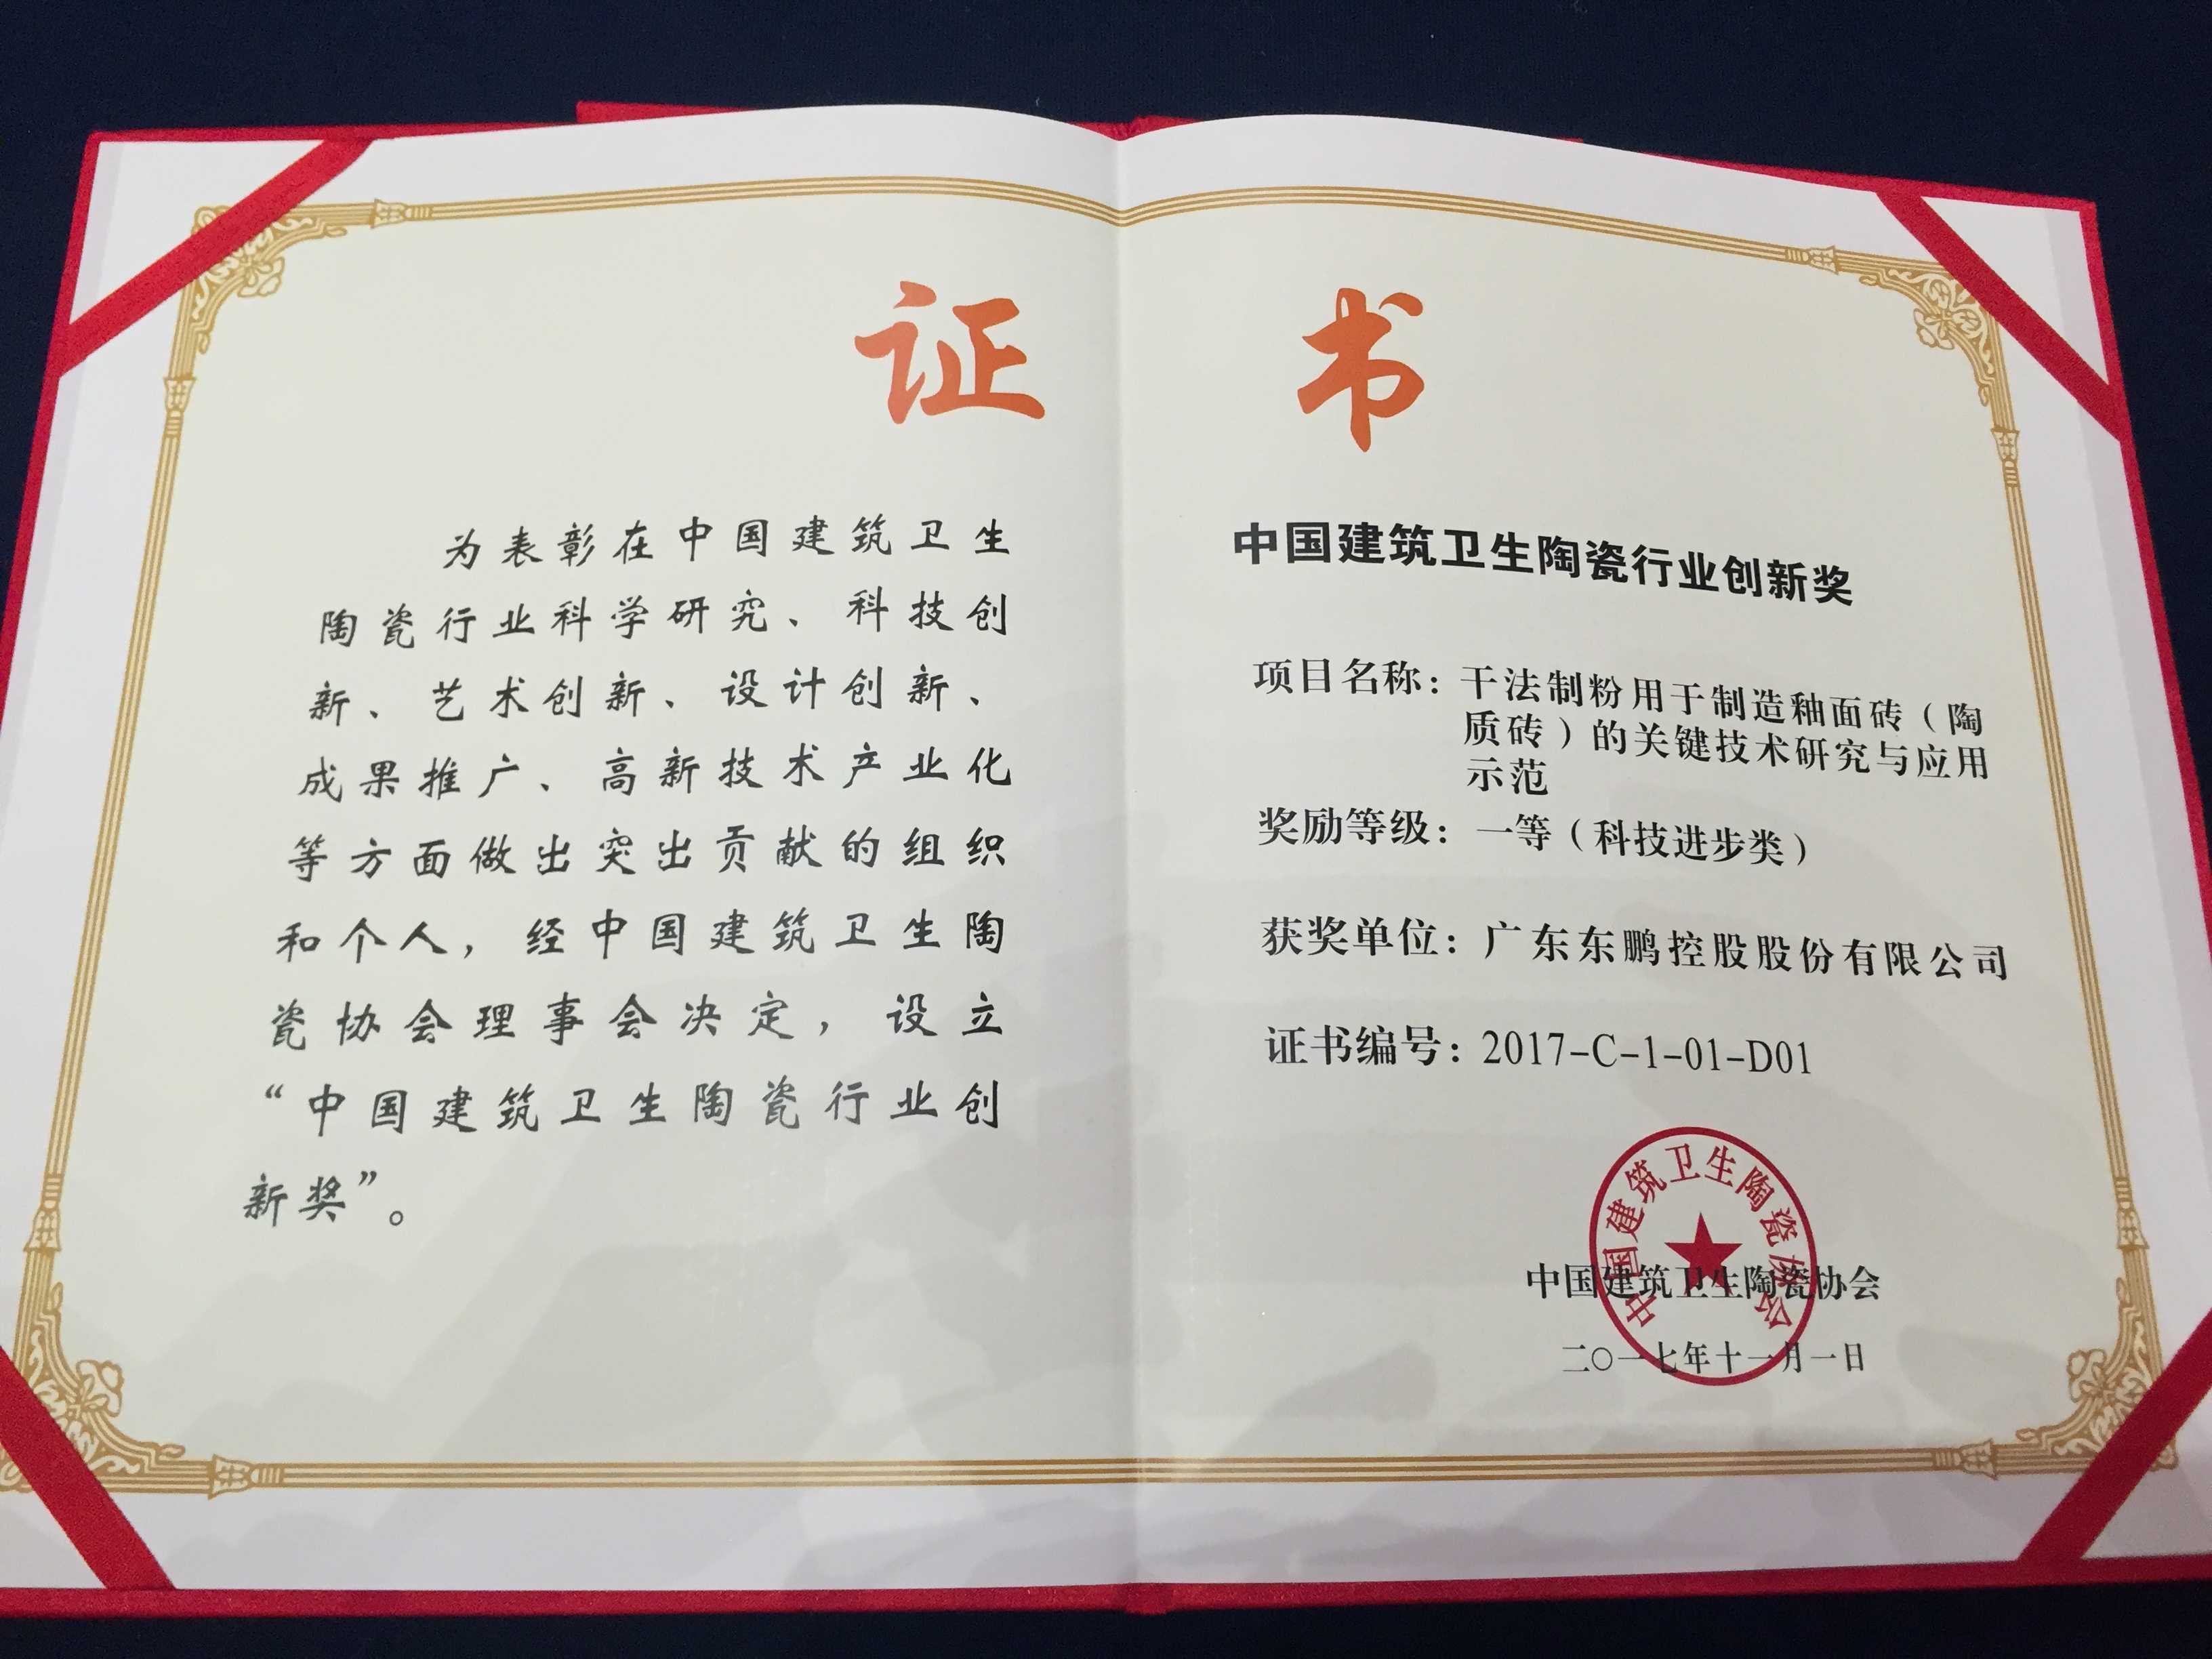 证书
为表彰在中国建筑卫生
陶瓷行业科学研究、科技创
新、艺术创新、设计创新、
成果推广、高新技术产业化
等方面做出突出贡献的组织
和个人，经中国建筑卫生陶
瓷协会理事会决定，设立
“中国建筑卫生陶瓷行业创
新奖”。
中国建筑卫生陶瓷行业创新奖
项目名称：干法制粉用于制造釉面砖（陶
质砖）的关键技术研究与应用
示范
奖励等级：一等（科技进步类）
获奖单位：广东东鹏控股股份有限公司
证书编号：2017-C-1-01-D01
中国建筑卫生陶瓷协会
中国建筑卫生陶瓷协会
二〇一七年十一月一日